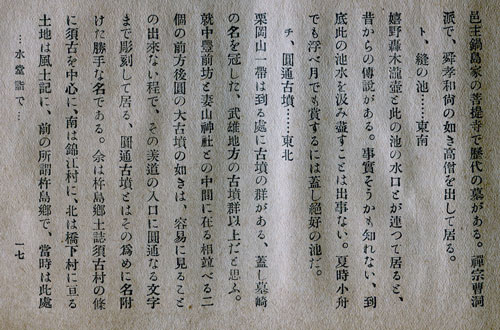 邑主鍋島家の菩提寺で歷代の墓がある。禪宗曹洞
派で、舜孝和尙の如き高僧を出して居る。
ト、縫の池……東南
嬉野轟木瀧壺と此の池の水口とが連つて居ると、
昔からの傳說がある。事實そうかも知れない、到
底此の池水を汲み盡すことは出事ない。夏時小舟
でも浮べ月でも賞するには蓋し絕好の池だ。
チ、圓通古墳……東北
栗岡山一帶は到る處に古墳の群がある、蓋し墓崎
の名を冠した、武雄地方の古墳群以上だと思ふ。
就中豐前坊と妻山神社との中間に在る相竝べる二
個の前方後圓の大古墳の如きは、容易に見ること
の出來ない程で、その羨道の入口に圓通なる文字
まで彫刻して居る、圓通古墳とはその爲めに名附
けた勝手な名である。余は杵島鄕土誌須古村の條
に須古を中心に、南は錦江村に、北は橋下村に亘る
土地は風土記に、前の所謂杵島鄕で、當時は此處
…水堂詣で…
一七